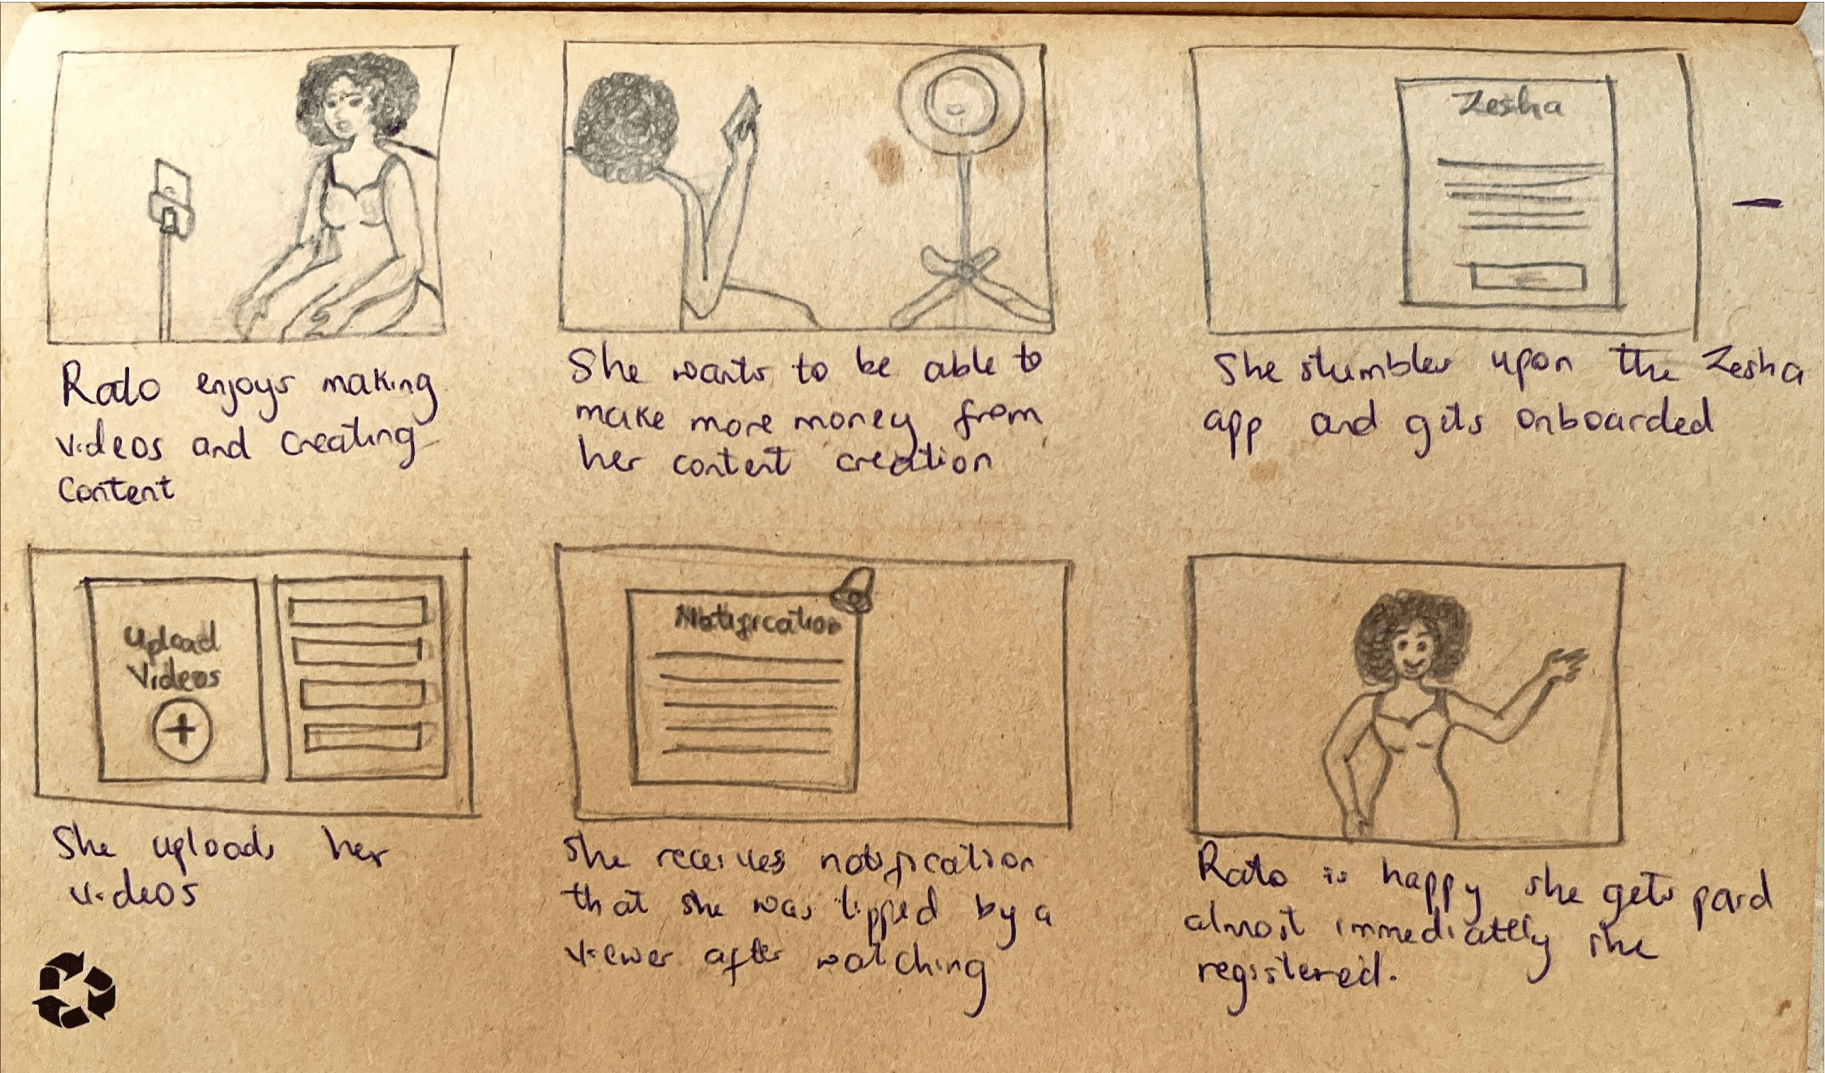 Zesha
Rato enjoys making
videos and creating
content
She wants to be able to
make more money from
her content creation
She stumbles upon the Zesha
app and gets onboarded
Upload
Videos
Notification
She uploads her
videos
she receives notification
that she was tipped by a
viewer after watching
Rato is happy she gets paid
almost immediately she
registered.